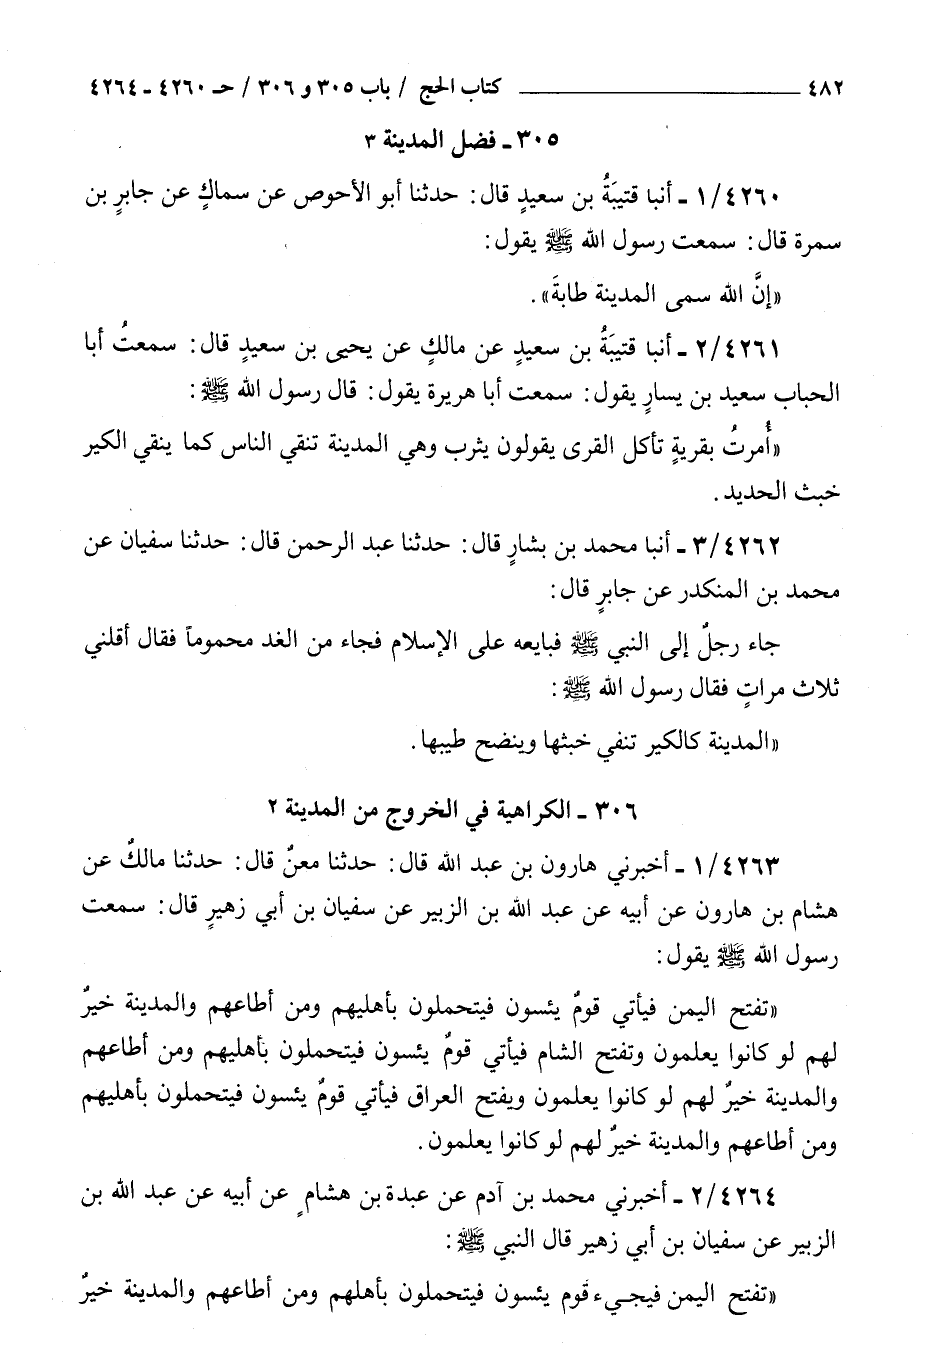 ٤٨٢ ــــــــــــــــــــ كتاب الحج / باب ٣٠٥ و ٣٠٦ / حـ ٤٢٦٠ ـ ٤٢٦٤
٣٠٥ ـ فضل المدينة ٣
١/٤٢٦٠ ـ أنبا قتيبَةُ بن سعيدٍ قال: حدثنا أبو الأحوص عن سماكٍ عن جابرٍ بن
سمرة قال: سمعت رسول الله ﷺ يقول:
«إنَّ الله سمى المدينة طابةَ».
٢/٤٢٦١ ـ أنبا قتيبَةُ بن سعيدٍ عن مالكٍ عن يحيى بن سعيدٍ قال: سمعتُ أبا
الحباب سعيد بن يسارٍ يقول: سمعت أبا هريرة يقول: قال رسول الله ﷺ:
«أُمرتُ بقريةٍ تأكل القرى يقولون يثرب وهي المدينة تنقي الناس كما ينقي الكير
خبث الحديد.
٣/٤٢٦٢ ـ أنبا محمد بن بشارٍ قال: حدثنا عبد الرحمن قال: حدثنا سفيان عن
محمد بن المنكدر عن جابرٍ قال:
جاء رجلٌ إلى النبي ﷺ فبايعه على الإسلام فجاء من الغد محموماً فقال أقلني
ثلاث مراتٍ فقال رسول الله ﷺ:
«المدينة كالكير تنفي خبثها وينضح طيبها.
٣٠٦ ـ الكراهية في الخروج من المدينة ٢
١/٤٢٦٣ ـ أخبرني هارون بن عبد الله قال: حدثنا معنٌ قال: حدثنا مالكٌ عن
هشام بن هارون عن أبيه عن عبد الله بن الزبير عن سفيان بن أبي زهيرٍ قال: سمعت
رسول الله ﷺ يقول:
«تفتح اليمن فيأتي قومٌ يئسون فيتحملون بأهليهم ومن أطاعهم والمدينة خيرٌ
لهم لو كانوا يعلمون وتفتح الشام فيأتي قومٌ يئسون فيتحملون بأهليهم ومن أطاعهم
والمدينة خيرٌ لهم لو كانوا يعلمون ويفتح العراق فيأتي قومٌ يئسون فيتحملون بأهليهم
ومن أطاعهم والمدينة خيرٌ لهم لو كانوا يعلمون.
٢/٤٢٦٤ ـ أخبرني محمد بن آدم عن عبدة بن هشامٍ عن أبيه عن عبد الله بن
الزبير عن سفيان بن أبي زهير قال النبي ﷺ:
«تفتح اليمن فيجيء قوم يئسون فيتحملون بأهلهم ومن أطاعهم والمدينة خيرٌ